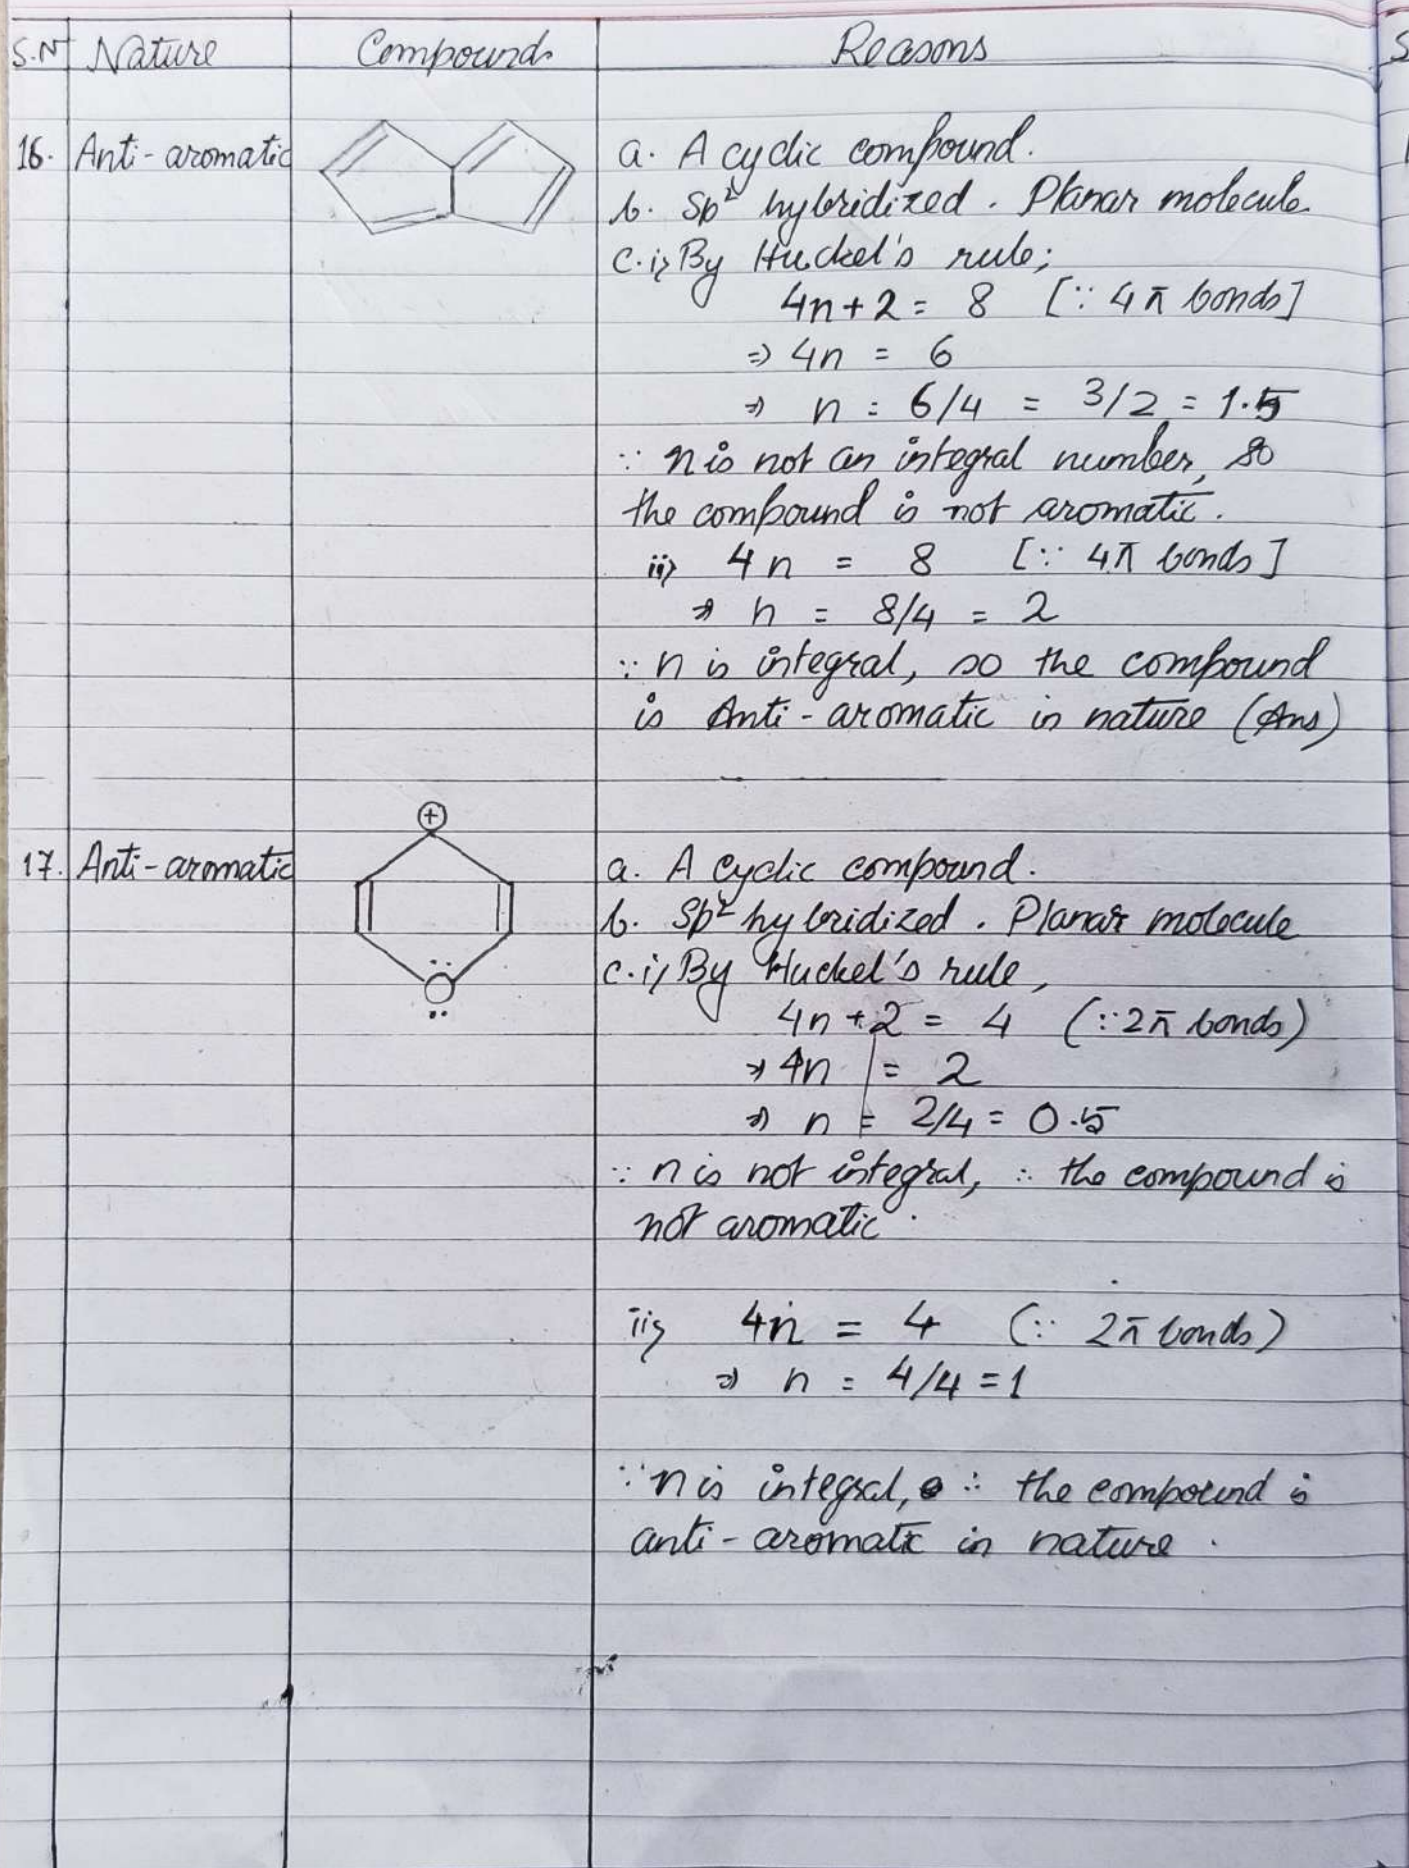 S.N Nature Compounds Reasons
16. Anti-aromatic a. A cyclic compound.
b. Sp² hybridized. Planar molecule
c. i) By Huckel's rule;
4n + 2 = 8 [∵ 4π bonds]
⇒ 4n = 6
⇒ n = 6/4 = 3/2 = 1.5
∵ n is not an integral number, so
the compound is not aromatic.
ii) 4n = 8 [∵ 4π bonds]
⇒ n = 8/4 = 2
∵ n is integral, so the compound
is Anti-aromatic in nature (Ans)
⊕
17. Anti-aromatic a. A cyclic compound.
b. Sp² hybridized. Planar molecule
c. i) By Huckel's rule,
O
4n + 2 = 4 (∵ 2π bonds)
⇒ 4n = 2
⇒ n = 2/4 = 0.5
∵ n is not integral, ∴ the compound is
not aromatic.
ii) 4n = 4 (∵ 2π bonds)
⇒ n = 4/4 = 1
∵ n is integral, ∴ the compound is
anti-aromatic in nature.